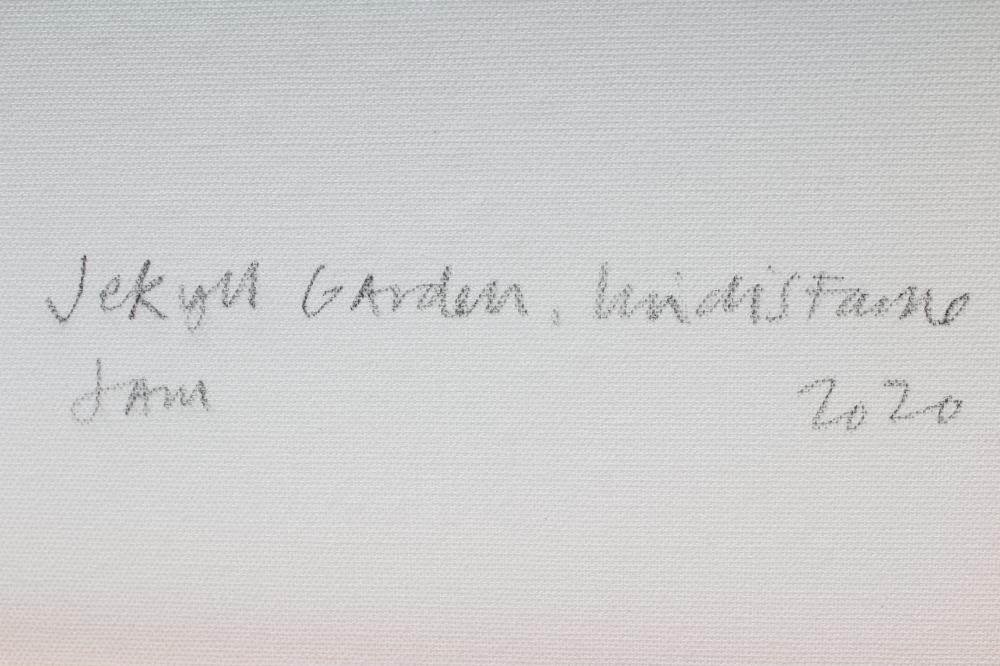 Jekyll Garden, lindisfarne
JAM 2020